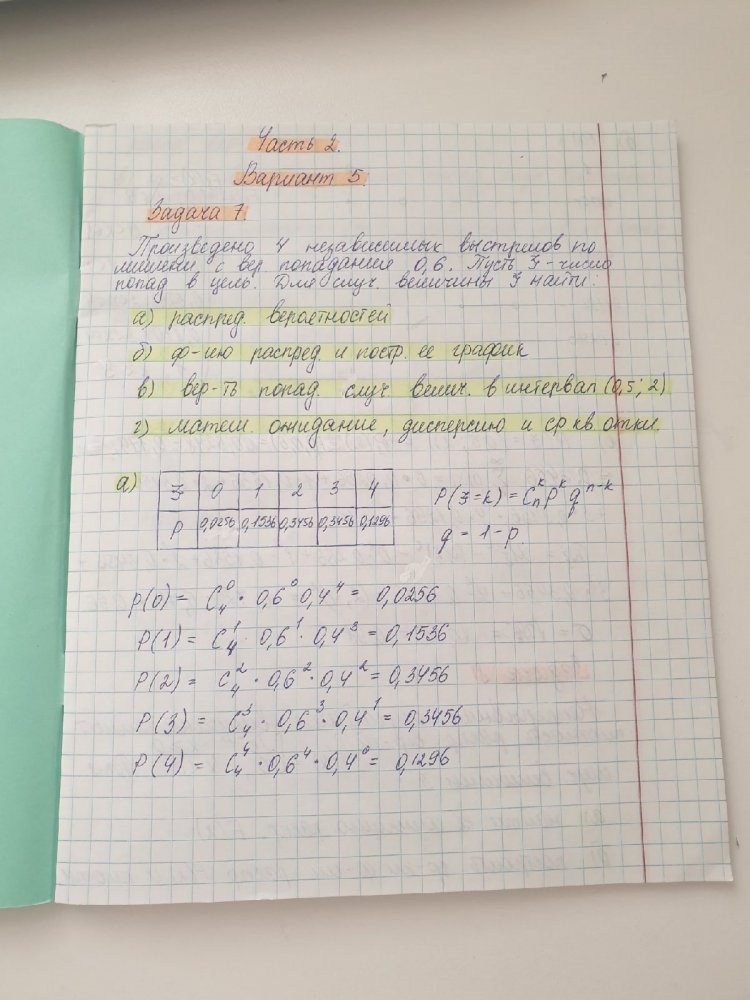 Часть 2.
Вариант 5.
Задача 7
Произведено 4 независимых выстрелов по
мишени с вер. попадания 0,6. Пусть ξ - число
попад в цель. Для случ. величины ξ найти:
а) распред. вероятностей
б) ф-ию распред. и постр. ее график
в) вер-ть попад. случ. велич. в интервал (0,5; 2)
г) матем. ожидание, дисперсию и ср кв. откл.
а)
ξ 0 1 2 3 4
P 0,0256 0,1536 0,3456 0,3456 0,1296
P(ξ=k) = C_n^k p^k q^{n-k}
q = 1-p.
P(0) = C_4^0 · 0,6^0 0,4^4 = 0,0256
P(1) = C_4^1 · 0,6^1 · 0,4^3 = 0,1536
P(2) = C_4^2 · 0,6^2 · 0,4^2 = 0,3456
P(3) = C_4^3 · 0,6^3 · 0,4^1 = 0,3456
P(4) = C_4^4 · 0,6^4 · 0,4^0 = 0,1296